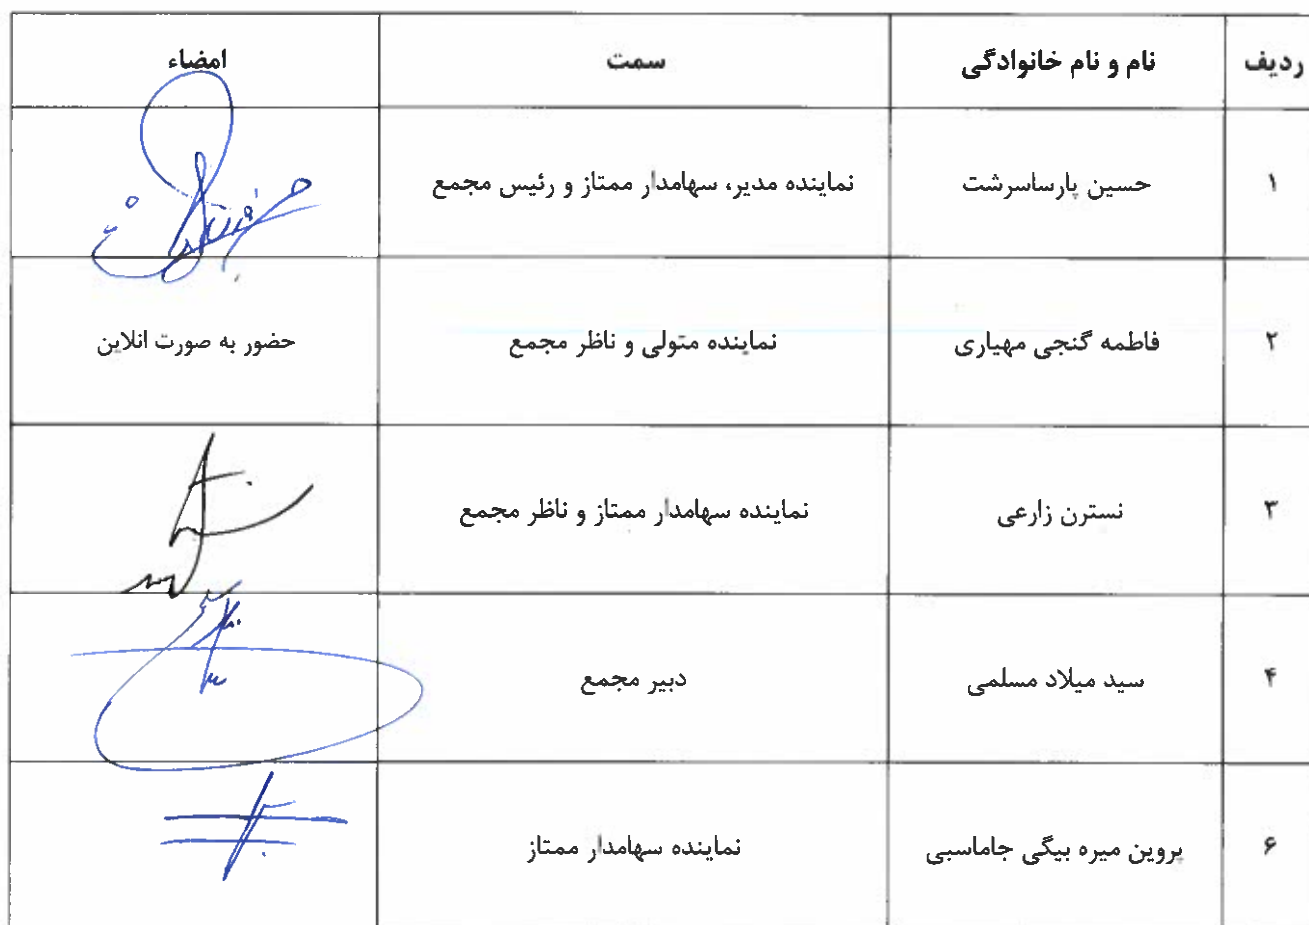 ردیف نام و نام خانوادگی سمت امضاء
۱ حسین پارساسرشت نماینده مدیر، سهامدار ممتاز و رئیس مجمع
۲ فاطمه گنجی مهیاری نماینده متولی و ناظر مجمع حضور به صورت انلاین
۳ نسترن زارعی نماینده سهامدار ممتاز و ناظر مجمع
۴ سید میلاد مسلمی دبیر مجمع
۶ پروین میره بیگی جاماسبی نماینده سهامدار ممتاز